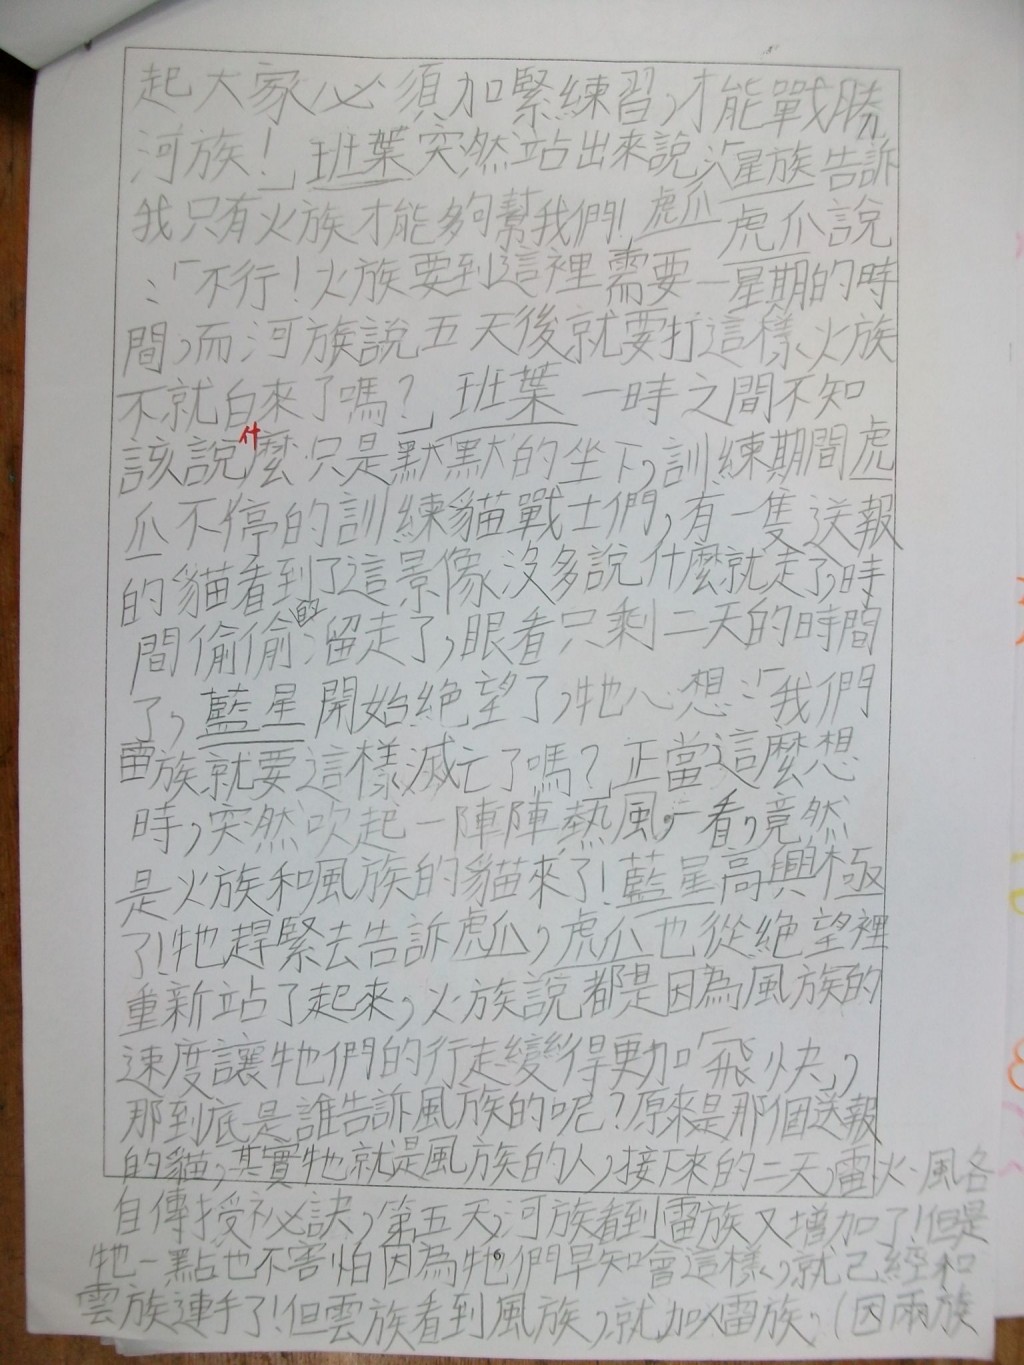 起大家必須加緊練習，才能戰勝
河族！」班葉突然站出來說：「星族告訴
我只有火族才能夠幫我們！虎爪 虎爪說
：「不行！火族要到這裡需要一星期的時
間，而河族說五天後就要打這樣火族
不就白來了嗎？」班葉一時之間不知
該說什麼只是默默的坐下，訓練期間虎
爪不停的訓練貓戰士們，有一隻送報
的貓看到了這景像沒多說什麼就走了，時
間偷偷的溜走了，眼看只剩二天的時間
了，藍星開始絕望了，牠心想：「我們
雷族就要這樣滅亡了嗎？」正當這麼想
時，突然吹起一陣陣熱風，一看，竟然
是火族和風族的貓來了！藍星高興極
了！牠趕緊去告訴虎爪，虎爪也從絕望裡
重新站了起來，火族說都是因為風族的
速度讓牠們的行走變得更加「飛快」，
那到底是誰告訴風族的呢？原來是那個送報
的貓，其實牠就是風族的人，接下來的二天，雷、火、風各
自傳授祕訣，第五天，河族看到雷族又增加了！但是
牠一點也不害怕因為牠們早知會這樣，就已經和
雲族連手了！但雲族看到風族，就加入雷族。（因兩族
6